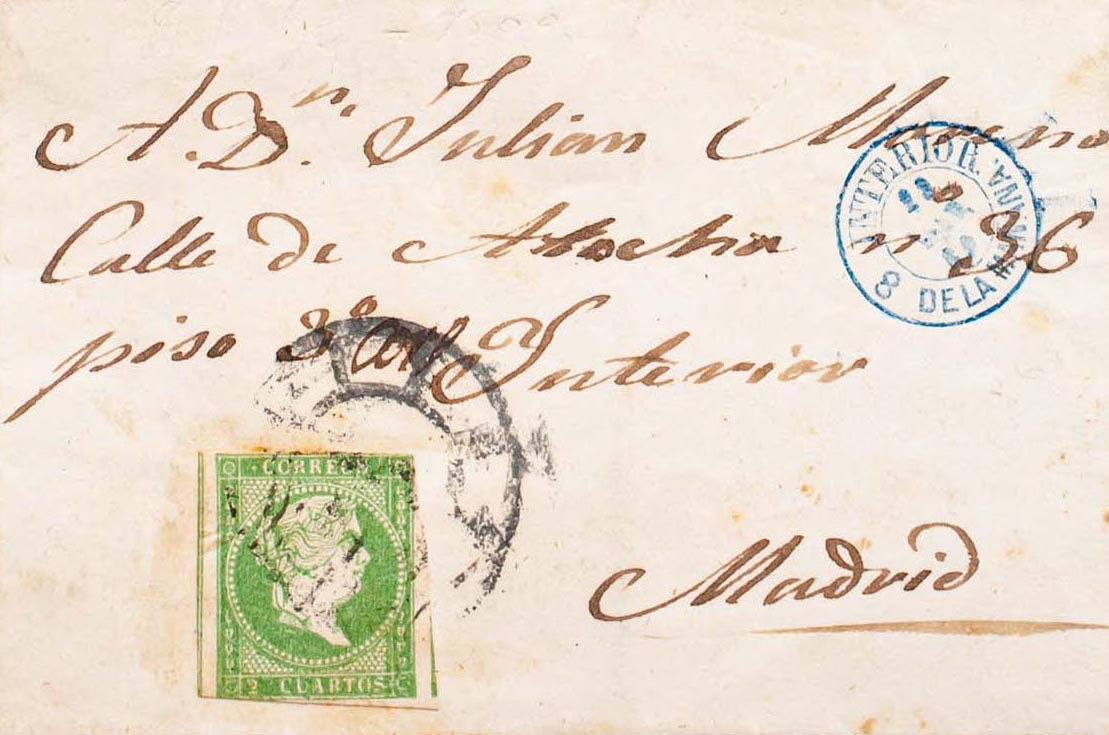 A. Dn. Julian Moreno
Calle de Atocha n 36
piso 3º Interior
Madrid
INTERIOR.
8 DE LA MAÑANA.
CORREOS
2 CUARTOS